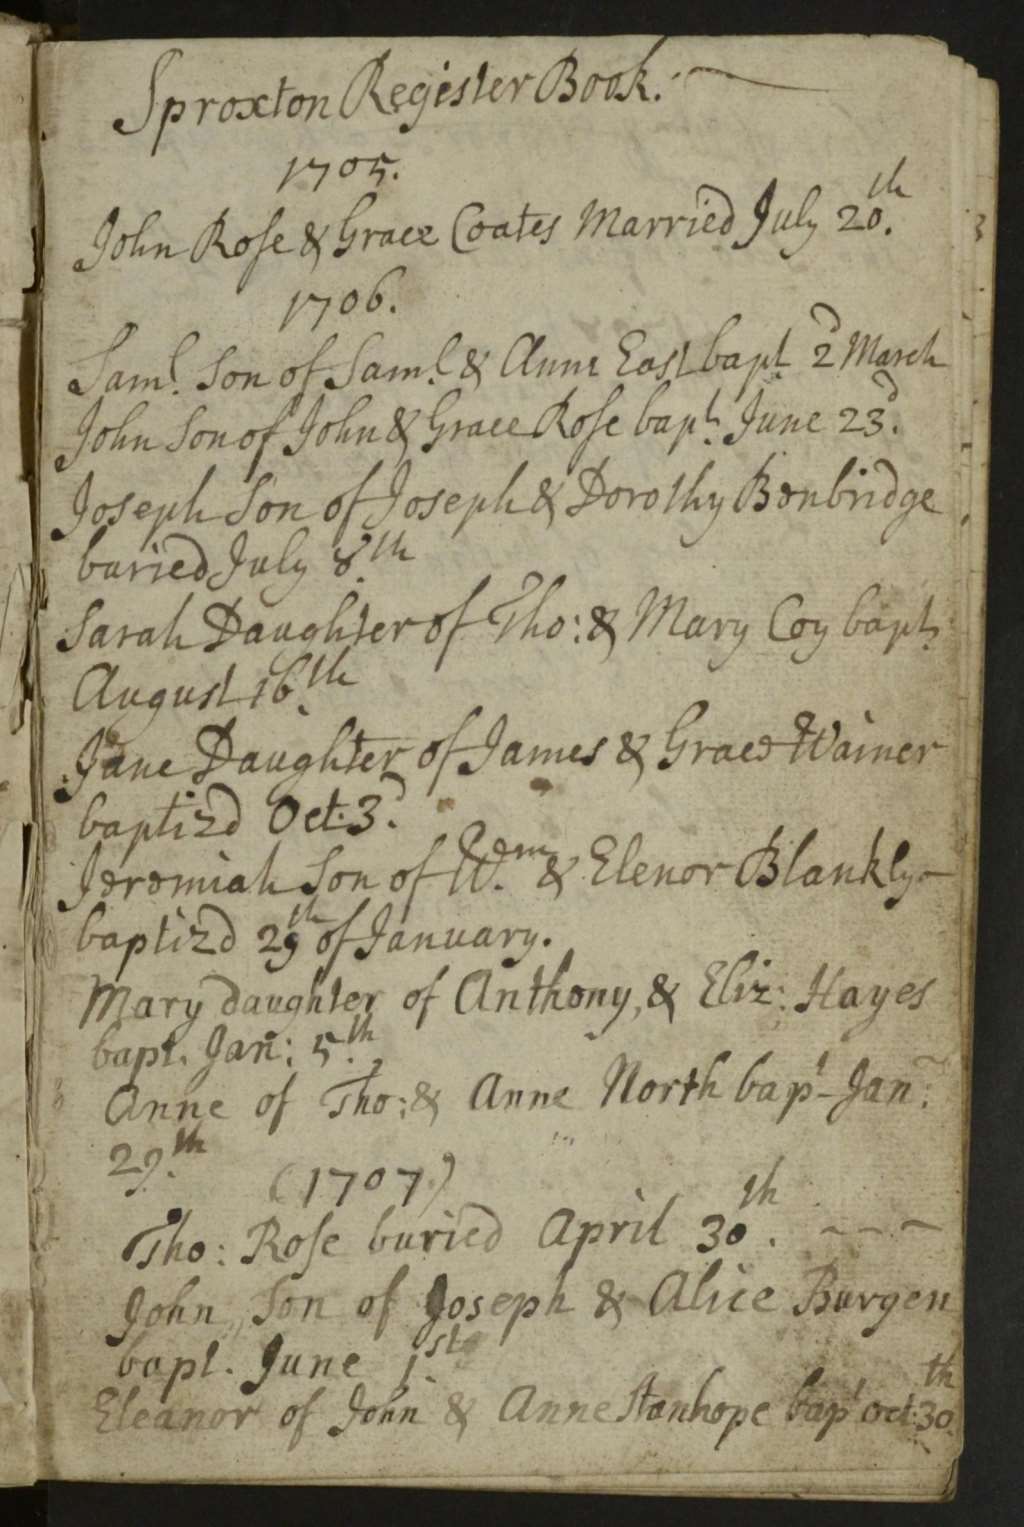 Sproxton Register Book.
1705.
John Rose & Grace Coates Married July 20th.
1706.
Saml. Son of Saml. & Anne East bapt. 2d March
John Son of John & Grace Rose bapt. June 23d.
Joseph Son of Joseph & Dorothy Bonbridge
buried July 8th.
Sarah Daughter of Tho: & Mary Coy bapt.
August 16th.
Jane Daughter of James & Grace Wainer
baptizd Oct: 3d.
Jeremiah Son of Wm. & Elenor Blankly
baptizd 29th of January.
Mary daughter of Anthony, & Eliz: Hayes
bapt. Jan: 5th.
Anne of Tho: & Anne North bapt Jan:
29th.
(1707)
Tho: Rose buried April 30th.
John Son of Joseph & Alice Burgen
bapt. June 1st
Eleanor of John & Anne Stanhope bapt Oct: 30th